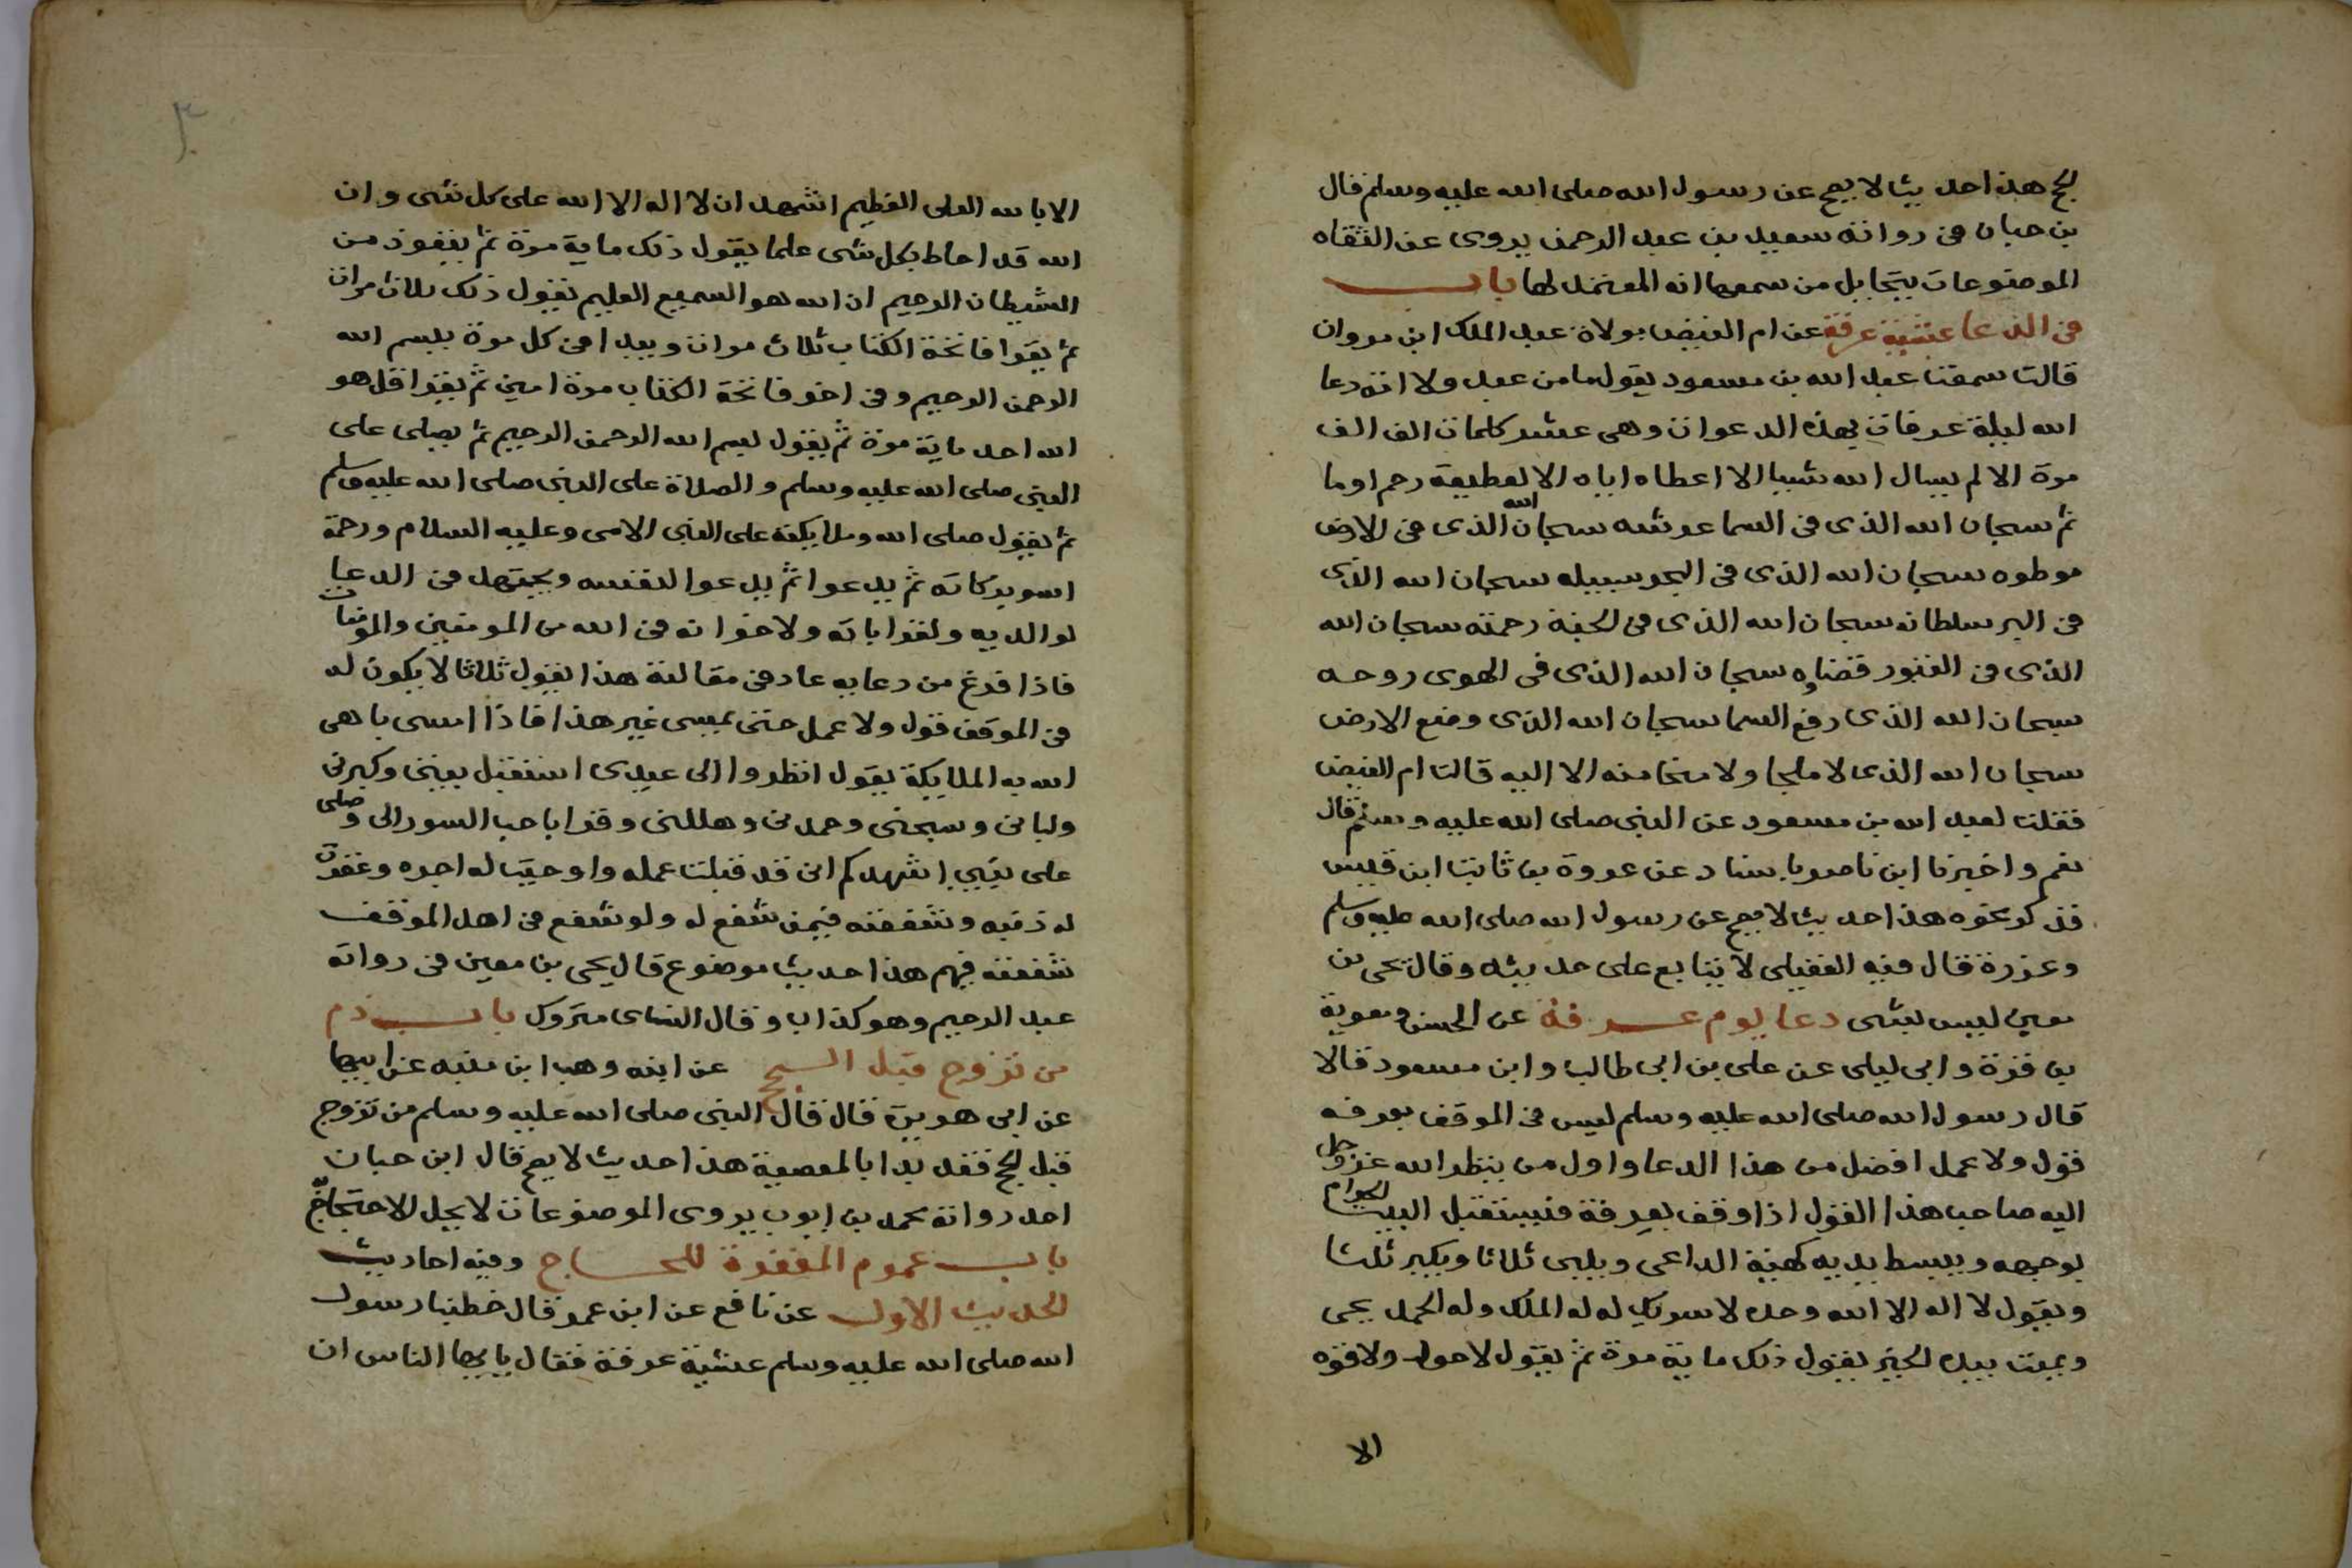 لحج هذا حديث لا يصح عن رسول الله صلى الله عليه وسلم قال
بن حبان في رواته سعيد بن عبد الرحمن يروى عن الثقاه
الموضوعات يتخايل من سمعها انه المعتمد لها باب
في الدعا عشية عرفة عن ام الفيض مولاة عبد الملك ابن مروان
قالت سمعت عبد الله بن مسعود يقول ما من عبد ولا امة دعا
الله ليلة عرفات بهذه الدعوات وهي عشر كلمات الف الف
مرة الا لم يسال الله شيا الا اعطاه اياه الا لقطيعة رحم او ما
ثم سبحان الله الذى في السما عرشه سبحان الله الذى في الارض
موطوه سبحان الله الذى في البحر سبيله سبحان الله الذى
في البر سلطانه سبحان الله الذى في الجنة رحمته سبحان الله
الذى في القبور قضاوه سبحان الله الذى في الهوى روحه
سبحان الله الذى رفع السما سبحان الله الذى وضع الارض
سبحان الله الذى لا ملجا ولا منجا منه الا اليه قالت ام الفيض
فقلت لعبد الله بن مسعود عن النبي صلى الله عليه وسلم قال
نعم واخبرنا ابن ناصر باسناد عن عروة بن ثابت ابن قيس
فذكر نحوه هذا حديث لا يصح عن رسول الله صلى الله عليه وسلم
وعزرة قال فيه العقيلى لا يتابع على حديثه وقال يحى بن
معين ليس بشى دعا يوم عرفة عن الحسن ومعوية
بن قرة وابى ليلى عن على بن ابى طالب وابن مسعود قالا
قال رسول الله صلى الله عليه وسلم ليس في الموقف بعرفه
قول ولا عمل افضل من هذا الدعا واول من ينظر الله عز وجل
اليه صاحب هذا القول اذا وقف بعرفة فيستقبل البيت الحرام
بوجهه ويبسط يديه كهية الداعى ويلبى ثلاثا ويكبر ثلثا
ويقول لا اله الا الله وحده لا شريك له له الملك وله الحمد يحى
ويميت بيده الخير يقول ذلك ماية مرة ثم يقول لا حول ولا قوه
الا
الا بالله العلى العظيم اشهد ان لا اله الا الله على كل شى وان
الله قد احاط بكل شى علما يقول ذلك ماية مرة ثم يتعوذ من
الشيطان الرجيم ان الله هو السميع العليم يقول ذلك ثلاث مرات
ثم يقرا فاتحة الكتاب ثلاث مرات ويبدا في كل مرة ببسم الله
الرحمن الرحيم وفي اخر فاتحة الكتاب مرة امين ثم يقرا قل هو
الله احد ماية مرة ثم يقول بسم الله الرحمن الرحيم ثم يصلى على
النبي صلى الله عليه وسلم والصلاة على النبي صلى الله عليه وسلم
ثم يقول صلى الله وملايكته على النبي الامى وعليه السلام ورحمة
الله وبركاته ثم يدعوا ثم يدعوا لنفسه ويجتهد في الدعا
لوالديه ولقراباته ولاخوانه في الله من المومنين والمومنات
فاذا فرغ من دعايه عاد في مقالته هذا يقول ثلاثا لا يكون له
في الموقف قول ولا عمل حتى يمسى غير هذا فاذا امسى باهى
الله به الملايكة يقول انظروا الى عبدى استقبل بيتى وكبرنى
ولبانى وسبحنى وحمدنى وهللنى وقرا باحب السور الى وصلى
على نبيى اشهدكم انى قد قبلت عمله واوجبت له اجره وغفرت
له ذنبه وشفعته فيمن شفع له ولو شفع في اهل الموقف
شفعته فيهم هذا حديث موضوع قال يحى بن معين في رواته
عبد الرحيم وهو كذاب وقال النساى متروك باب ذم
من تزوج قبل الحج عن ابنه وهب ابن منبه عن ابيها
عن ابى هريرة قال قال النبي صلى الله عليه وسلم من تزوج
قبل الحج فقد بدا بالمعصية هذا حديث لا يصح قال ابن حبان
احد رواته محمد بن ايوب يروى الموضوعات لا يحل الاحتجاج
باب عموم المغفرة للحاج وفيه احاديث
الحديث الاول عن نافع عن ابن عمر قال خطبنا رسول
الله صلى الله عليه وسلم عشية عرفة فقال يا يها الناس ان